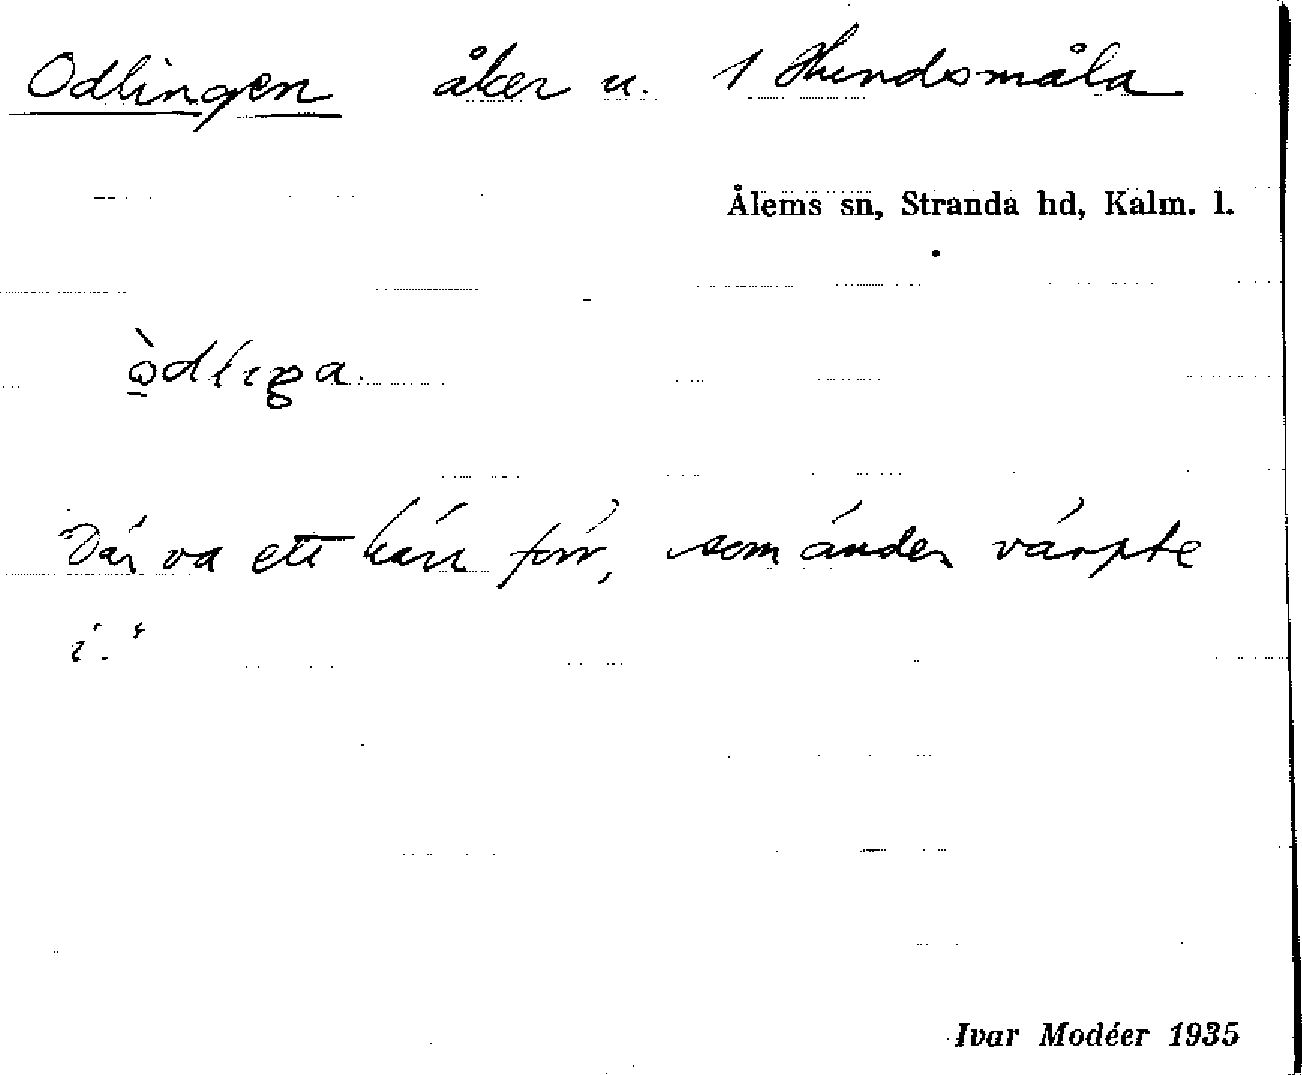 Odlingen åker u. 1 Hundsmåla
Ålems sn, Stranda hd, Kalm. l.
Där va ett kärr förr, som änder värpte
i."
Ivar Modéer 1935